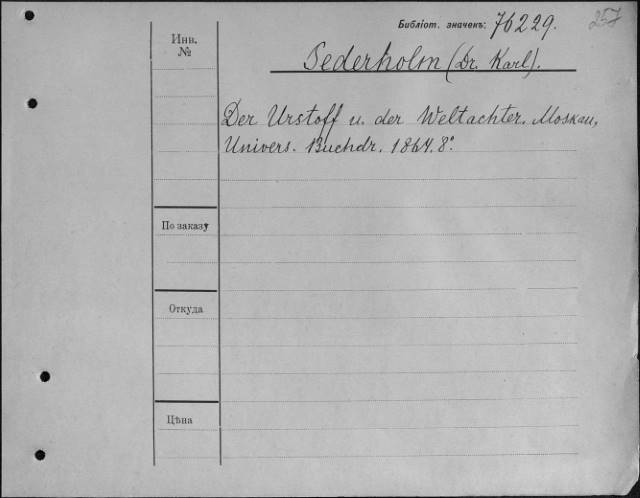 Библіот. значекъ: 76229.
257
Инв.
№
Sederholm (Dr. Karl).
Der Urstoff u. der Weltaether. Moskau,
Univers. Buchdr. 1864. 8°.
По заказу
Откуда
Цѣна